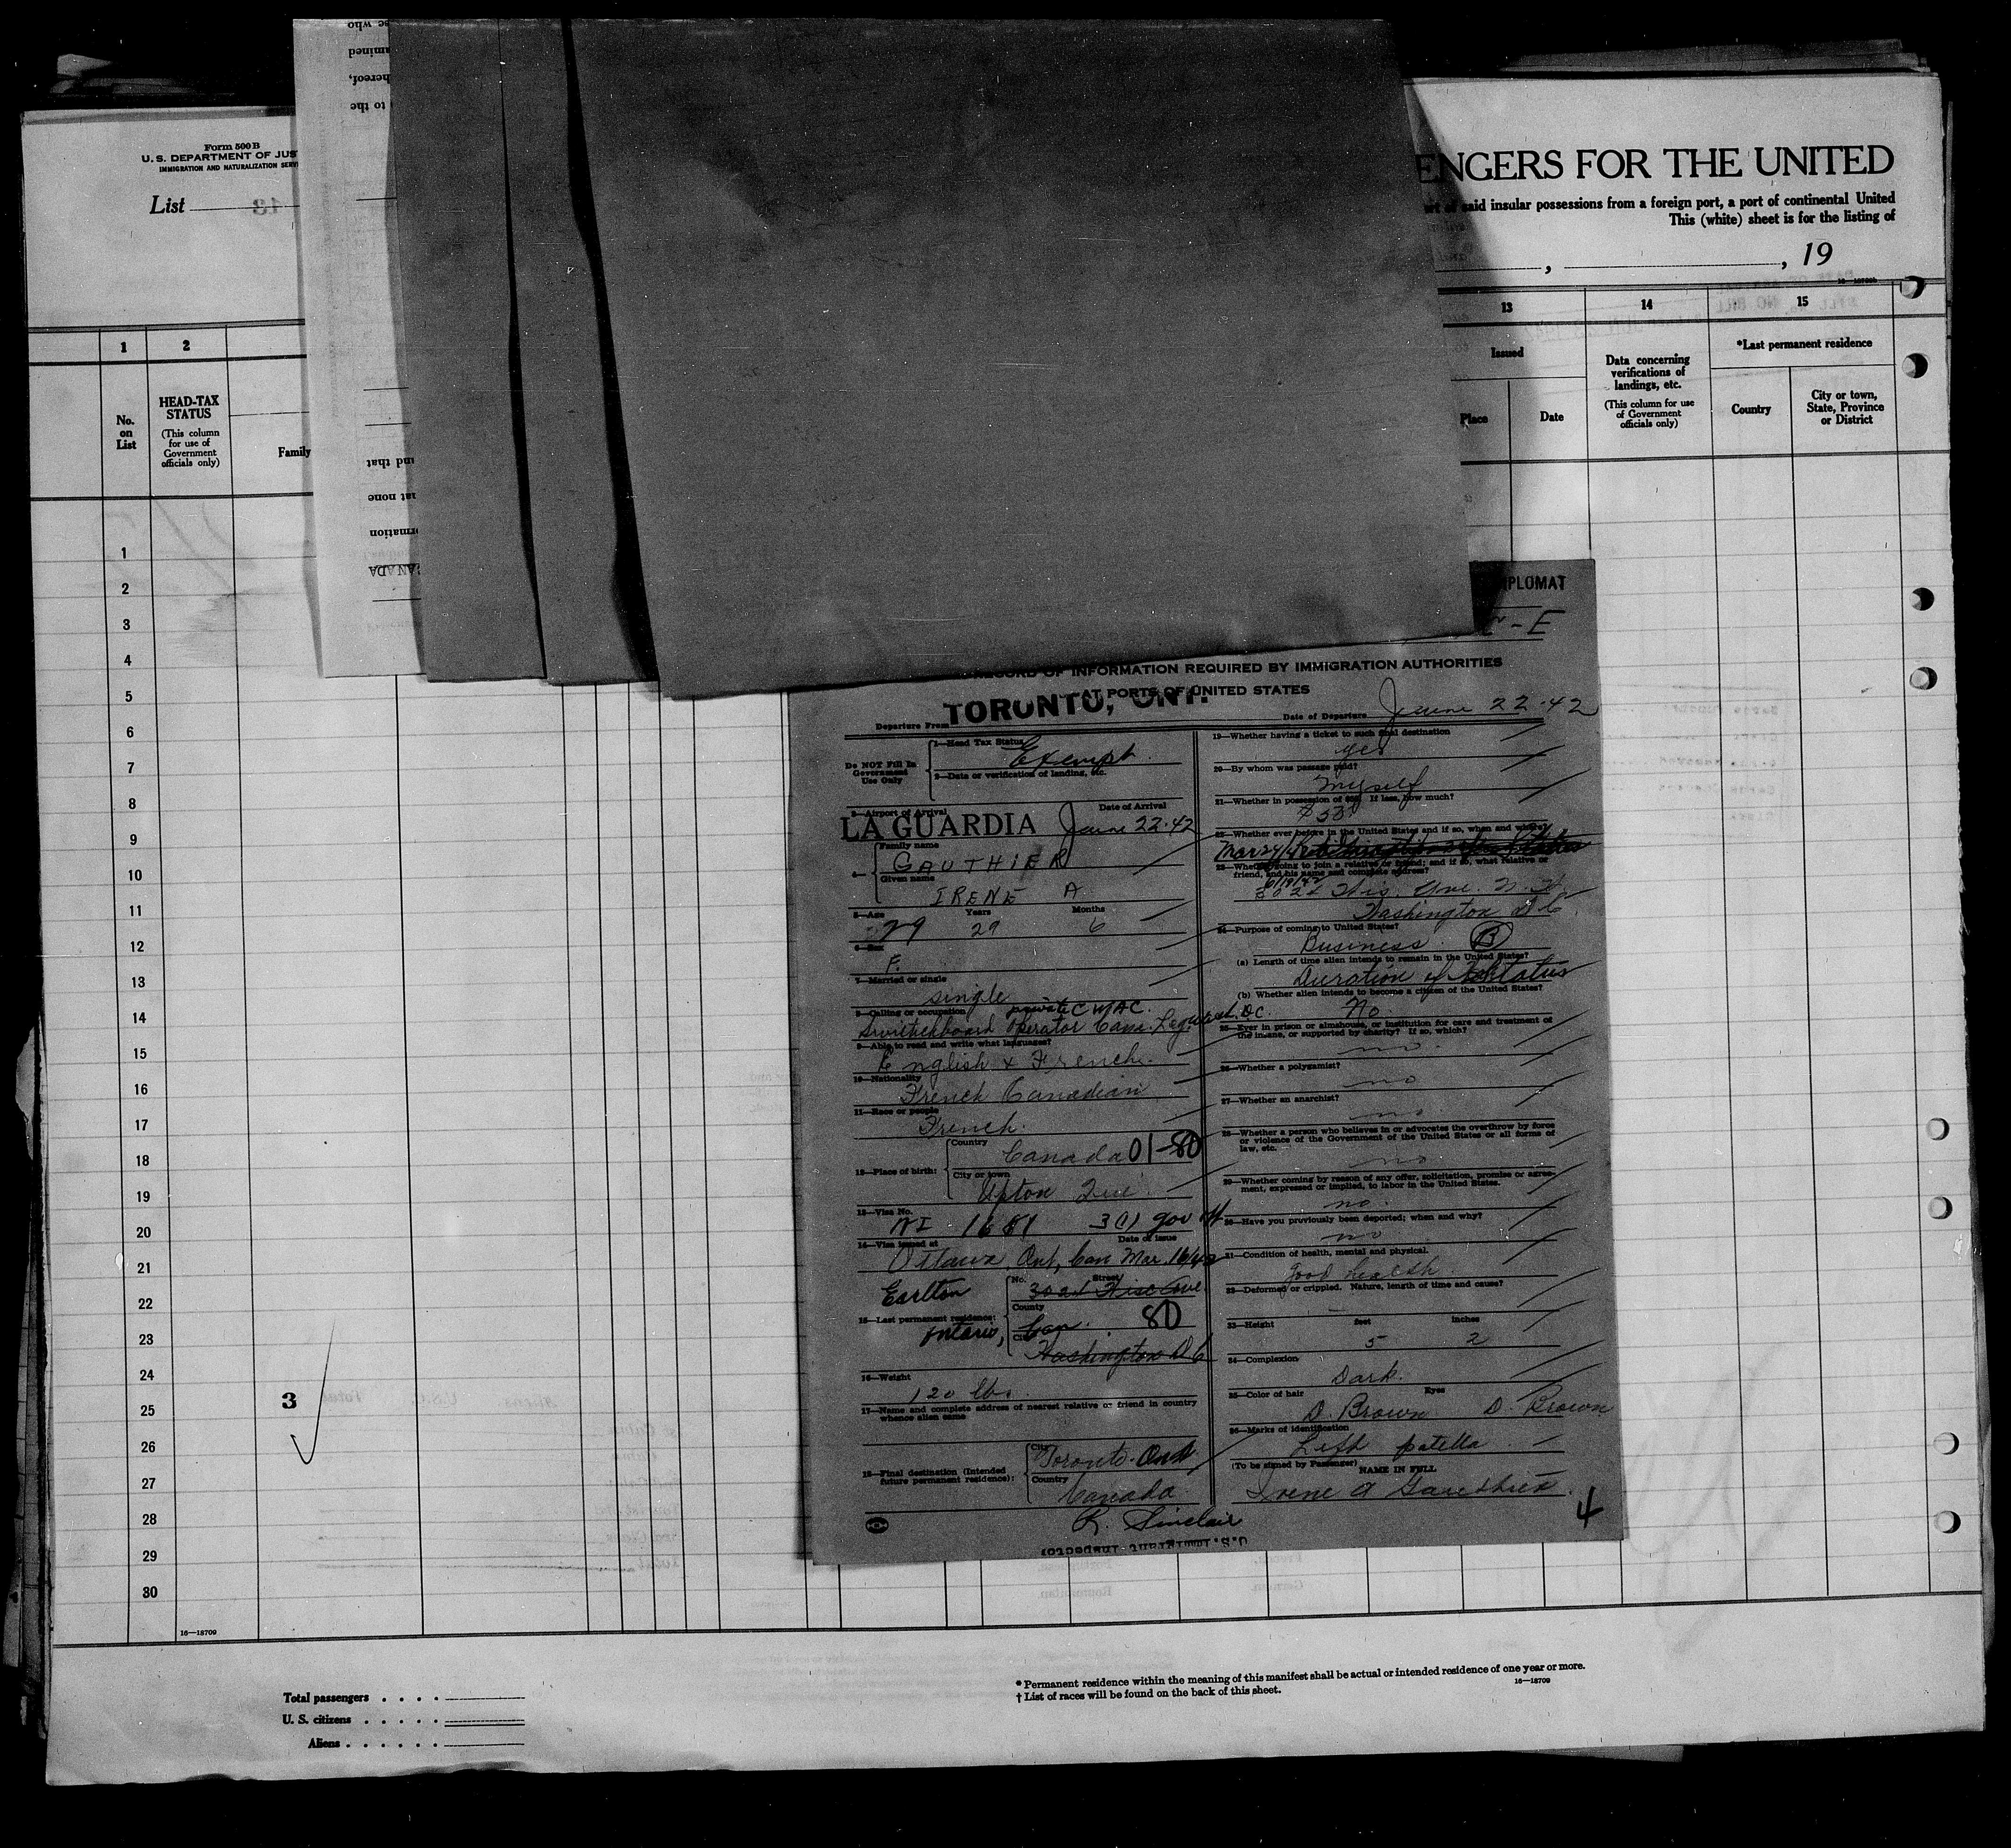 Form 500 B
U. S. DEPARTMENT OF JUS
IMMIGRATION AND NATURALIZATION SERV
List
13
ee who
amined
hereof,
to the
and that
at none
ormation
CANADA
ENGERS FOR THE UNITED
said insular possessions from a foreign port, a port of continental United
This (white) sheet is for the listing of
, , 19
1
2
13
14
15
No. on List
HEAD-TAX STATUS
(This column for use of Government officials only)
Family
Issued
Place
Date
Data concerning verifications of landings, etc.
(This column for use of Government officials only)
*Last permanent residence
Country
City or town, State, Province or District
1
2
3
4
5
6
7
8
9
10
11
12
13
14
15
16
17
18
19
20
21
22
23
24
25
26
27
28
29
30
3
16—18709
PLOMAT
- E
RECORD OF INFORMATION REQUIRED BY IMMIGRATION AUTHORITIES
AT PORTS OF UNITED STATES
Departure From TORONTO, ONT.
Date of Departure June 22·42
Do NOT Fill In
Government
Use Only
1—Head Tax Status
Exempt
2—Data or verification of landing, etc.
3—Airport of Arrival
Date of Arrival
LA GUARDIA June 22·42
4—
Family name
GAUTHIER
Given name
IRENE A
5—Age
Years
Months
29 29 6
6—Sex
F.
7—Married or single
single
8—Calling or occupation private C W A C
Switchboard Operator Cana. Legation D.C.
9—Able to read and write what languages?
English & French.
10—Nationality
French Canadian
11—Race or people
French.
12—Place of birth:
Country
Canada 01-80
City or town
Upton Que
13—Visa No.
NI 1681 3(1) gov off
14—Visa issued at
Date of issue
Ottawa Ont, Can Mar. 16/42
15—Last permanent residence:
Earlton
Ontario,
No.
Street
3021 Wisc Ave.
County
Can. 80
City
Washington D C
16—Weight
120 lbs.
17—Name and complete address of nearest relative or friend in country
whence alien came
18—Final destination (Intended
future permanent residence):
City
Toronto- Ont
Country
Canada
R. Sinclair
U.S. Immigrant Inspector
19—Whether having a ticket to such final destination
yes
20—By whom was passage paid?
Myself
21—Whether in possession of $50, If less, how much?
22—Whether ever before in the United States and if so, when and where?
Mar 24/42
23—Whether going to join a relative or friend; and if so, what relative or
friend, and his name and complete address?
6/19/42
3021 Wis. Ave. N.W.
Washington D.C.
24—Purpose of coming to United States?
Business. B
(a) Length of time alien intends to remain in the United States?
Duration of status
(b) Whether alien intends to become a citizen of the United States?
No.
25—Ever in prison or almshouse, or institution for care and treatment of
the insane, or supported by charity? If so, which?
no
26—Whether a polygamist?
no
27—Whether an anarchist?
no
28—Whether a person who believes in or advocates the overthrow by force
or violence of the Government of the United States or all forms of
law, etc.
no
29—Whether coming by reason of any offer, solicitation, promise or agree-
ment, expressed or implied, to labor in the United States.
no
30—Have you pruviously been deported; when and why?
no
31—Condition of health, mental and physical.
good health.
32—Deformed or crippled. Nature, length of time and cause?
—
33—Height
feet
inches
5 2
34—Complexion
Dark.
35—Color of hair
Eyes
D. Brown D. Brown
36—Marks of identification
Left patella
(To be signed by Passenger)
NAME IN FULL
Irene A Gauthier.
4
Total passengers . . . .
U. S. citizens . . . . .
Aliens . . . . . .
* Permanent residence within the meaning of this manifest shall be actual or intended residence of one year or more.
† List of races will be found on the back of this sheet.
16—18709